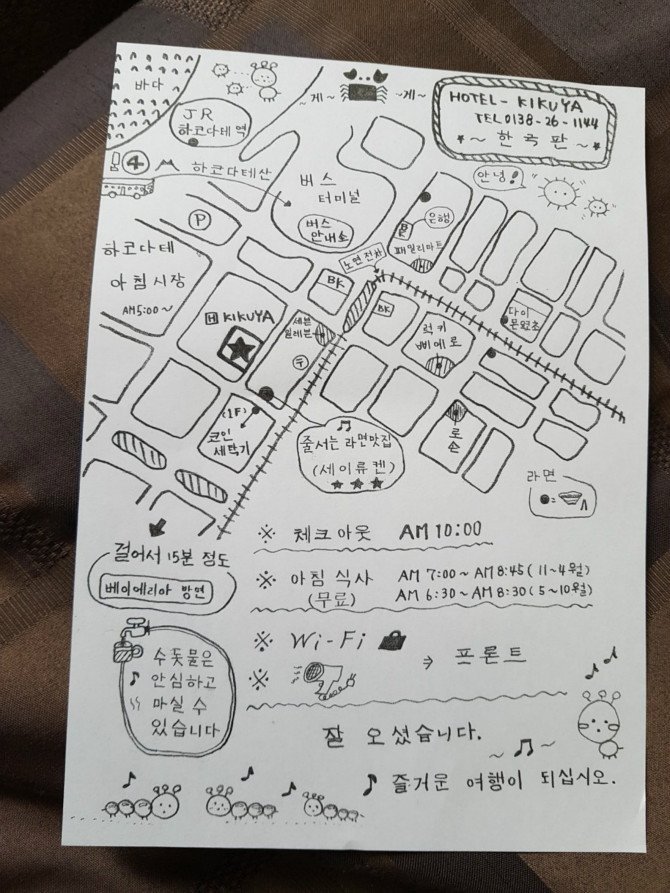 바다
~게~
~게~
HOTEL - KIKUYA
TEL 0138-26-1144
~ 한국판 ~
JR
하코다테역
안녕!
4
하코다테산
버스
터미널
버스
안내소
은행
BK
패밀리마트
P
노면전차
하코다테
아침시장
AM5:00~
BK
BK
H KIKUYA
세븐
일레븐
럭키
삐에로
다이
몬요코
(1F)
코인
세탁기
줄서는 라면맛집
(세이류켄)
★ ★ ★
로손
라면
걸어서 15분 정도
베이에리아 방면
※ 체크아웃 AM 10:00
※ 아침 식사 AM 7:00~AM 8:45(11~4월)
(무료) AM 6:30~AM 8:30(5~10월)
※ Wi-Fi
※
⇒ 프론트
수돗물은
안심하고
마실 수
있습니다
잘 오셨습니다.
♪ 즐거운 여행이 되십시오.